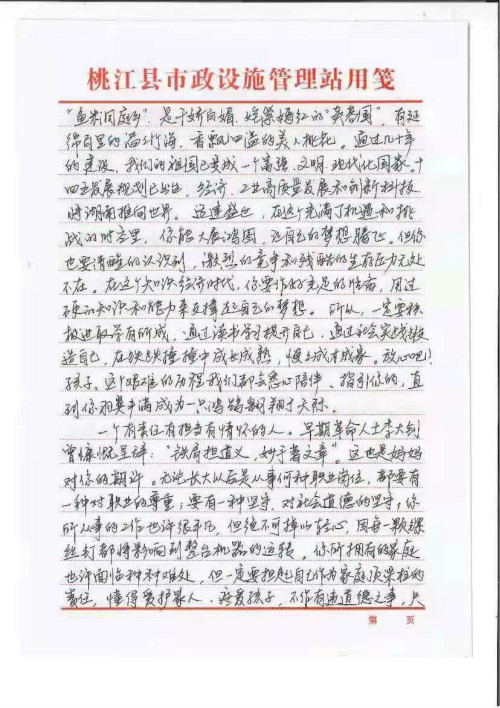 桃江县市政设施管理站用笺
“鱼米洞庭乡”、是千娇百媚、姹紫嫣红的“黄春园”,有延
绵百里的茁竹海、香飘四溢的美人桃花。通过几十年
的建设,我们的祖国已变成一个富强、文明、现代化国家。十
四五发展规划已出台,经济、工业高质量发展和创新科技
将湖南推向世界。适逢盛世,在这个充满了机遇和挑
战的时空里,你能大展鸿图,让自己的梦想腾飞。但你
也要清醒的认识到,激烈的竞争和残酷的生存压力无处
不在。在这个知识经济时代,你要作好充足的准备,用过
硬的知识和能力来支撑起自己的梦想。所以,一定要积
极进取学有所成,通过读书学习提升自己,通过社会实践锻
造自己,在跌跌撞撞中成长成熟,慢慢成才成家。放心吧!
孩子,这个艰难的历程我们都会悉心陪伴、指引你的,直
到你羽翼丰满成为一只鸿鹄翱翔于天际。
一个有责任有担当有情怀的人。早期革命人士李大钊
曾慷慨呈译:“铁肩担道义,妙手著文章”。这也是妈妈
对你的期许。无论长大以后是从事何种职业岗位,都要有
一种对职业的尊重;要有一种坚守,对社会道德的坚守;你
所从事的工作也许很平凡,但绝不可掉以轻心,因每一颗螺
丝钉都将影响到整台机器的运转,你所拥有的家庭
也许面临种种难处,但一定要担起自己作为家庭顶梁柱的
责任,懂得爱护家人、疼爱孩子,不作有违道德之事,只
第 页